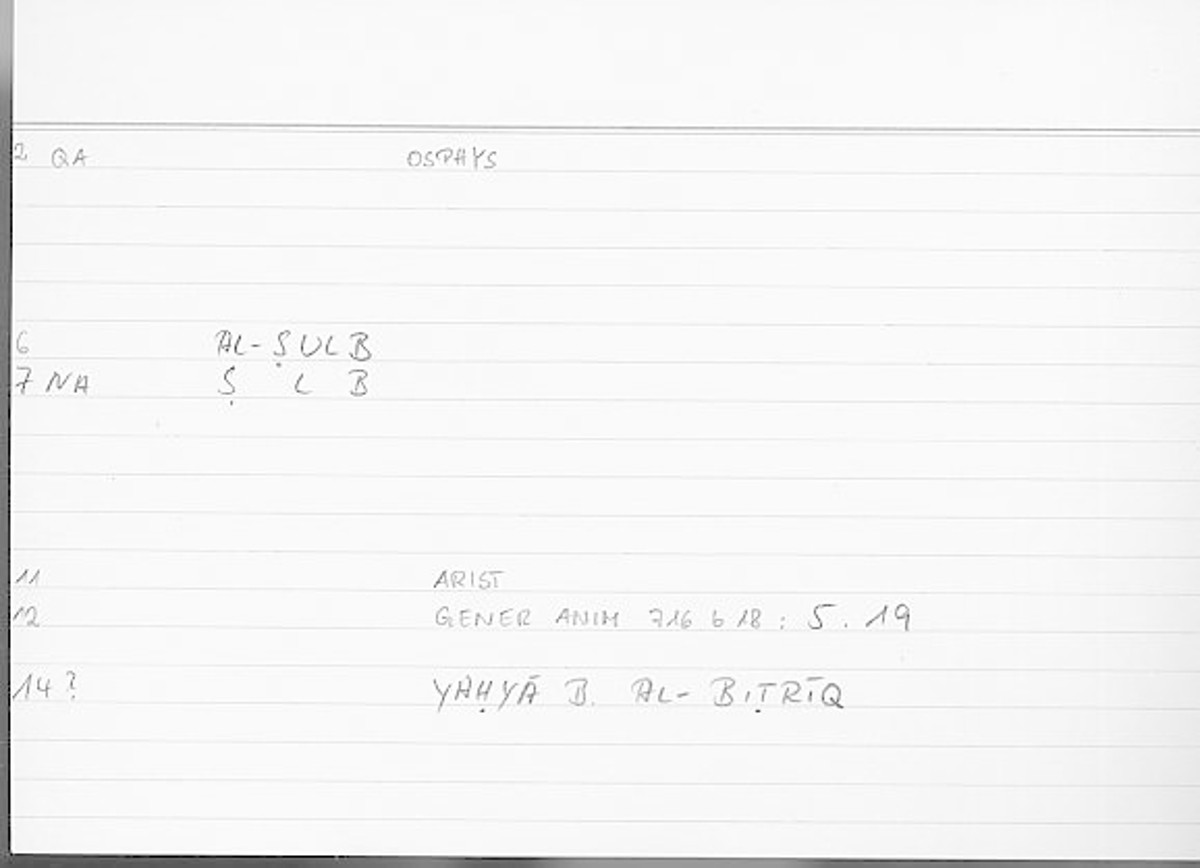 2 QA OSPHYS
6 AL-ṢULB
7 NA Ṣ L B
11 ARIST
12 GENER ANIM 716 b 18 : 5 . 19
14 ? YAḤYĀ B. AL-BIṬRĪQ